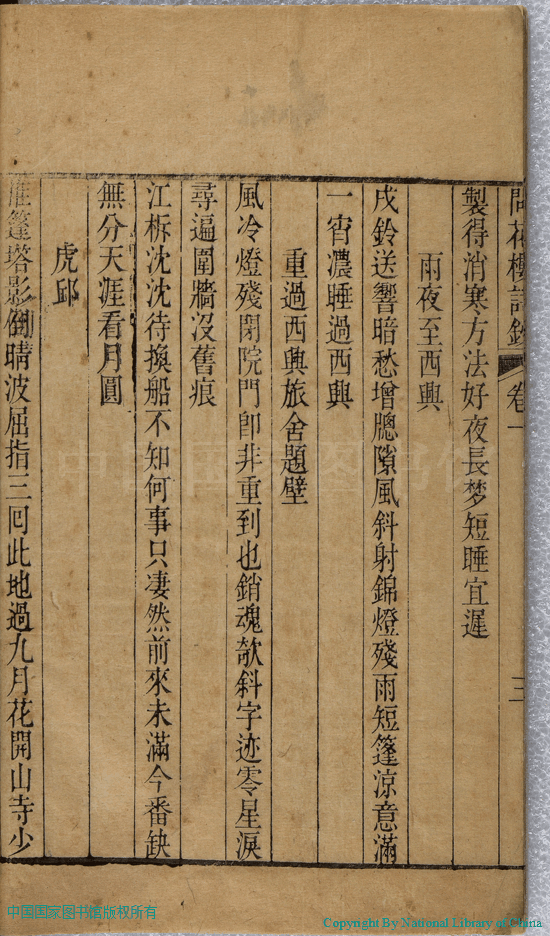 問花樓詩鈔 卷一 三
製得消寒方法好夜長梦短睡宜遲
雨夜至西興
戍鈴送響暗愁增牎隙風斜射錦燈殘雨短篷凉意滿
一宵濃睡過西興
重過西興旅舍題壁
風冷燈殘閉院門卽非重到也銷魂欹斜字迹零星淚
尋遍圍牆沒舊痕
江柝沈沈待換船不知何事只凄然前來未滿今番缺
無分天涯看月圓
虎邱
篷塔影倒晴波屈指三囘此地過九月花開山寺少
中国国家图书馆版权所有
Copyright By National Library of China